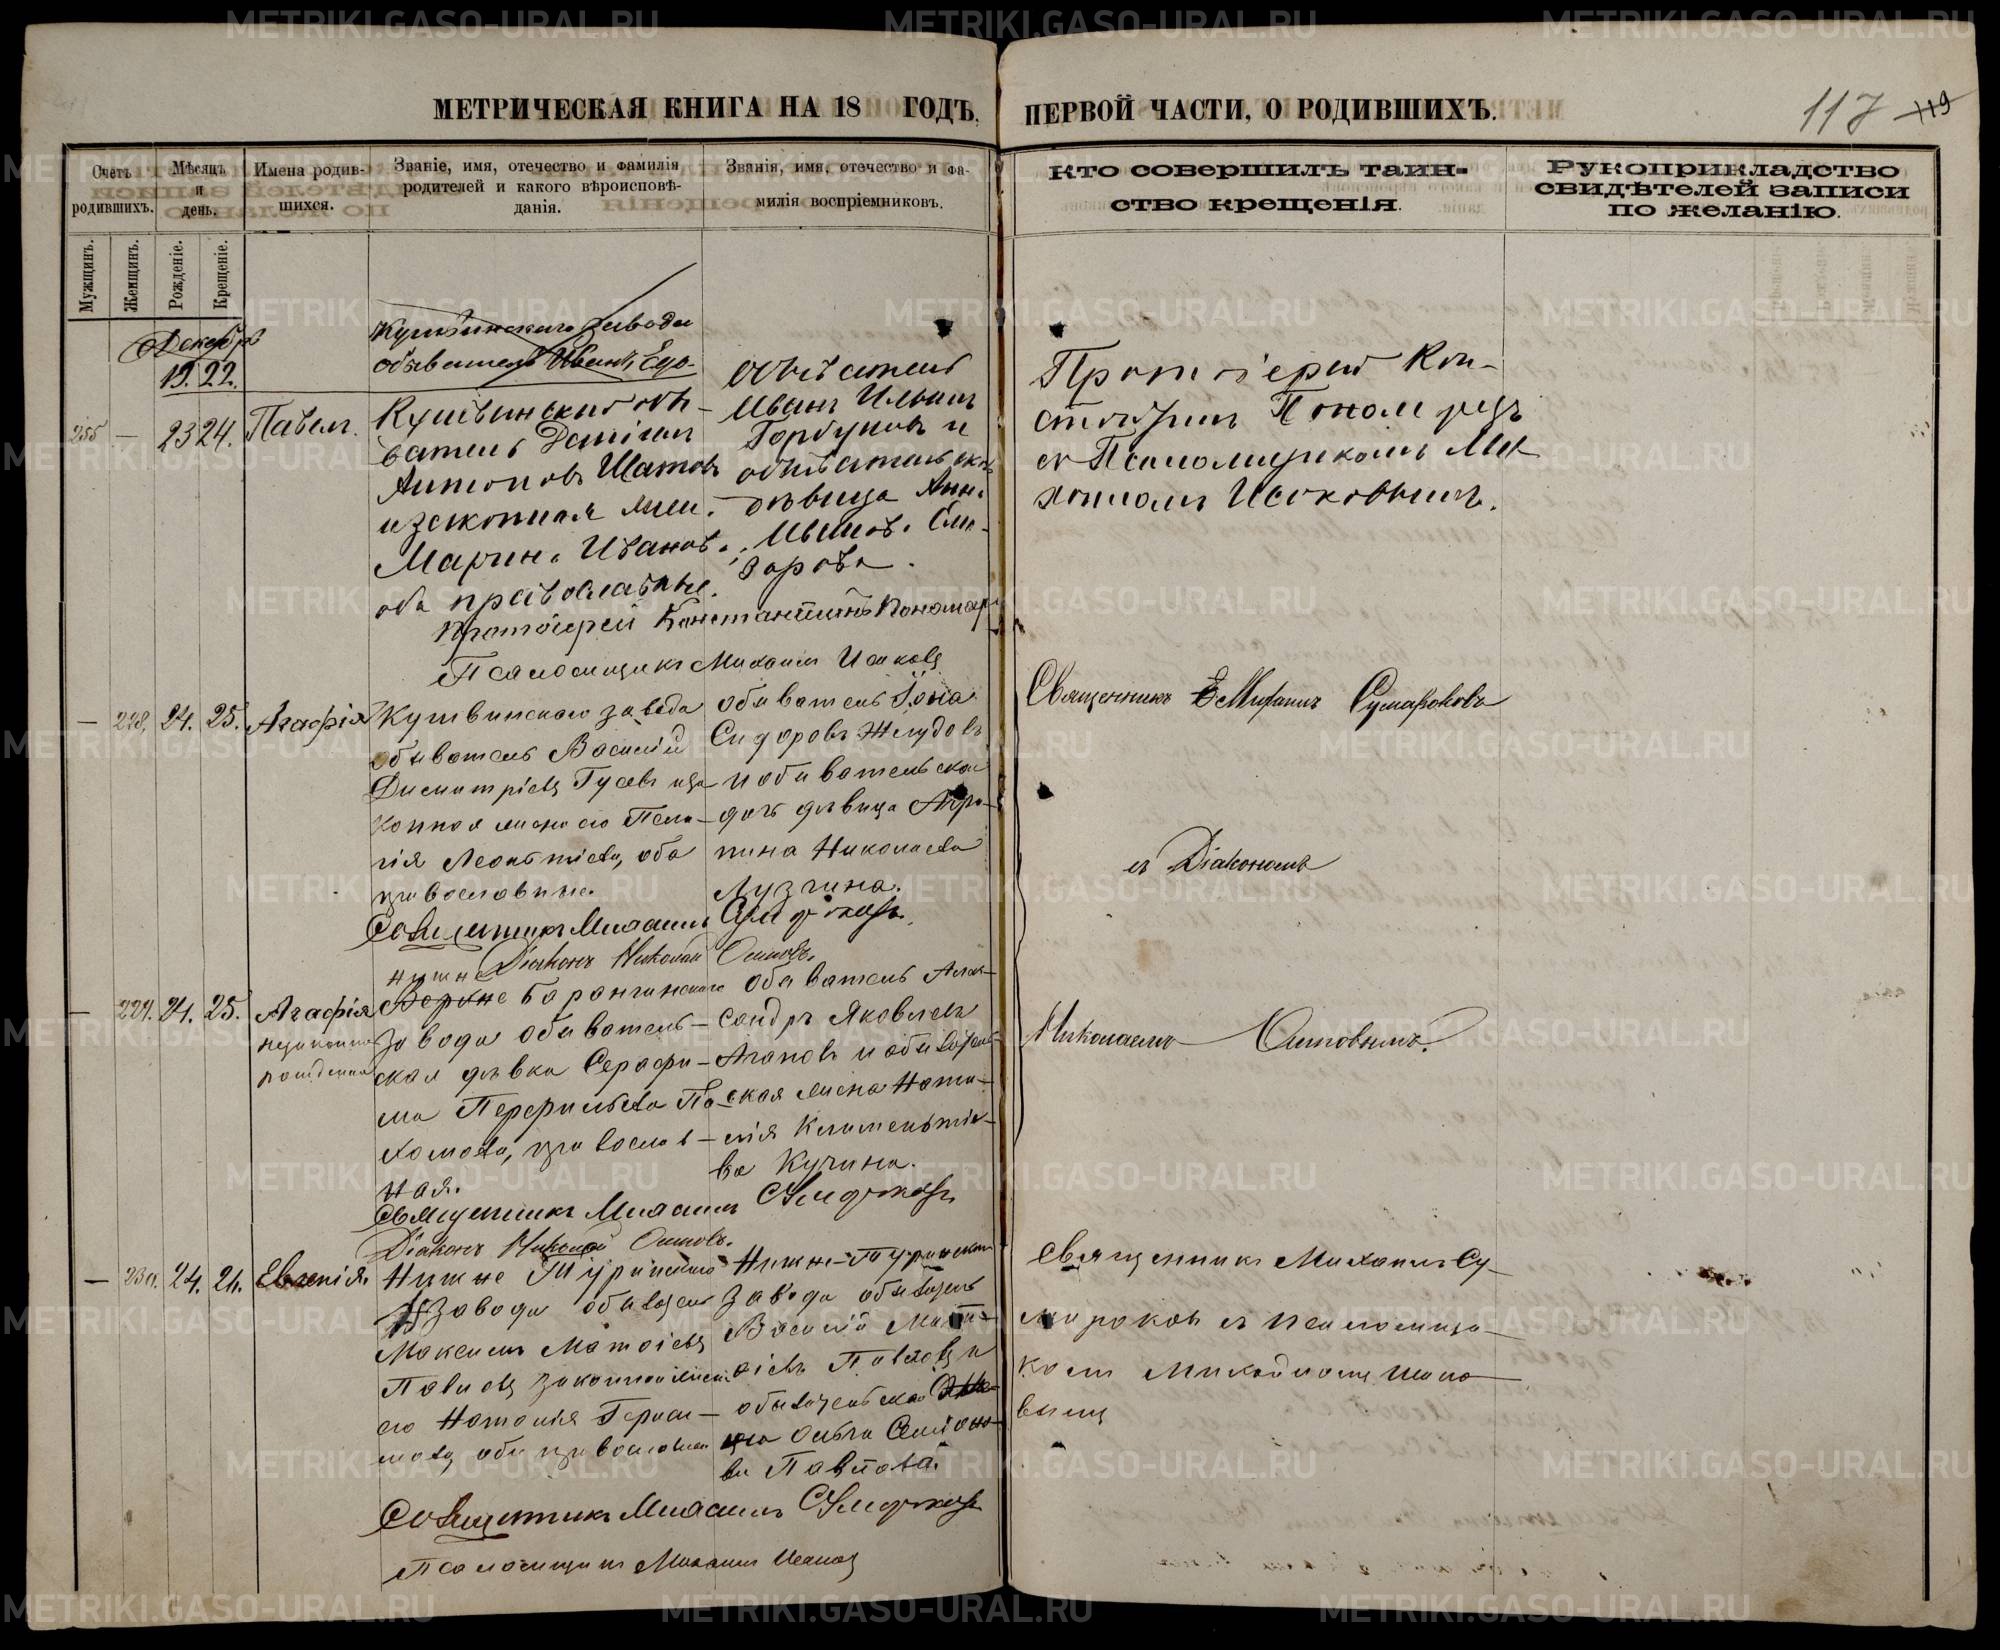 МЕТРИЧЕСКАЯ КНИГА НА 18 ГОДЪ,
ПЕРВОЙ ЧАСТИ, О РОДИВШИХЪ.
117 119
Счетъ родившихъ.
Мѣсяцъ и день.
Имена родив-
шихся.
Званіе, имя, отечество и фамилія
родителей и какого вѣроисповѣ-
данія.
Званія, имя, отечество и фа-
милія воспріемниковъ.
КТО СОВЕРШИЛЪ ТАИН-
СТВО КРЕЩЕНІЯ.
РУКОПРИКЛАДСТВО
СВИДѢТЕЛЕЙ ЗАПИСИ
ПО ЖЕЛАНІЮ.
Мужчинъ.
Женщинъ.
Рожденіе.
Крещеніе.
Декабрь
19. 22.
Кушвинскаго завода
обыватель Иванъ Его-
255 — 23 24. Павелъ.
Кушвинскій обы-
ватель
Антоновъ Шатовъ
и законная жен.
Марина Иванов.
оба православные.
обыватель
Иванъ Ильинъ
Горбуновъ и
обывательская
дѣвица Анна
Протоіерей Кон-
стантинъ Пономаревъ
съ Псаломщикомъ Ми-
хаиломъ Исаковымъ.
Протоіерей Константинъ Пономар
Псаломщикъ Михаилъ Исаковъ
— 228. 24. 25. Агафія
Кушвинскаго завода
обыватель Василій
Дмитріевъ Гусевъ и за-
конная жена его Пела-
гія Леонтіева, оба
православные.
обыватель Іона
Сидоровъ Жлудовъ
и обывательская
дочь дѣвица Агри-
пина Николаева
Лузгина.
Священникъ Михаилъ Сумароковъ
съ Діакономъ
Николаемъ Осиповымъ.
Священникъ Михаилъ Сумароковъ.
Діаконъ Николай Осиповъ.
— 229. 24. 25. Агафія
незаконно
рожденная
Нижне
Верхне Баранчинскаго
завода обыватель-
ская дѣвка Серафи-
ма Перфильева Па-
хомова, православ-
ная.
обыватель Алек-
сандръ Яковлевъ
Агаповъ и обыватель-
ская жена Ната-
лія Климентіе-
ва Кучина.
Священникъ Михаилъ Сумароковъ
Діаконъ Николай Осиповъ.
— 230. 24. 26. Евгенія.
Нижне Туринскаго
завода обыватель
Максимъ Матвіевъ
Павловъ законная жена
его Наталія Гераси-
мова, оба православные
Нижне-Туринскаго
завода обыватель
Василій Матв-
ѣевъ Павловъ и
обывательская
Ольга Семіоно-
ва Павлова.
Священникъ Михаилъ Су-
мароковъ съ псаломщи-
комъ Михаиломъ Исако-
вымъ
Священникъ Михаилъ Сумароковъ
Псаломщикъ Михаилъ Исаковъ
METRIKI.GASO-URAL.RU